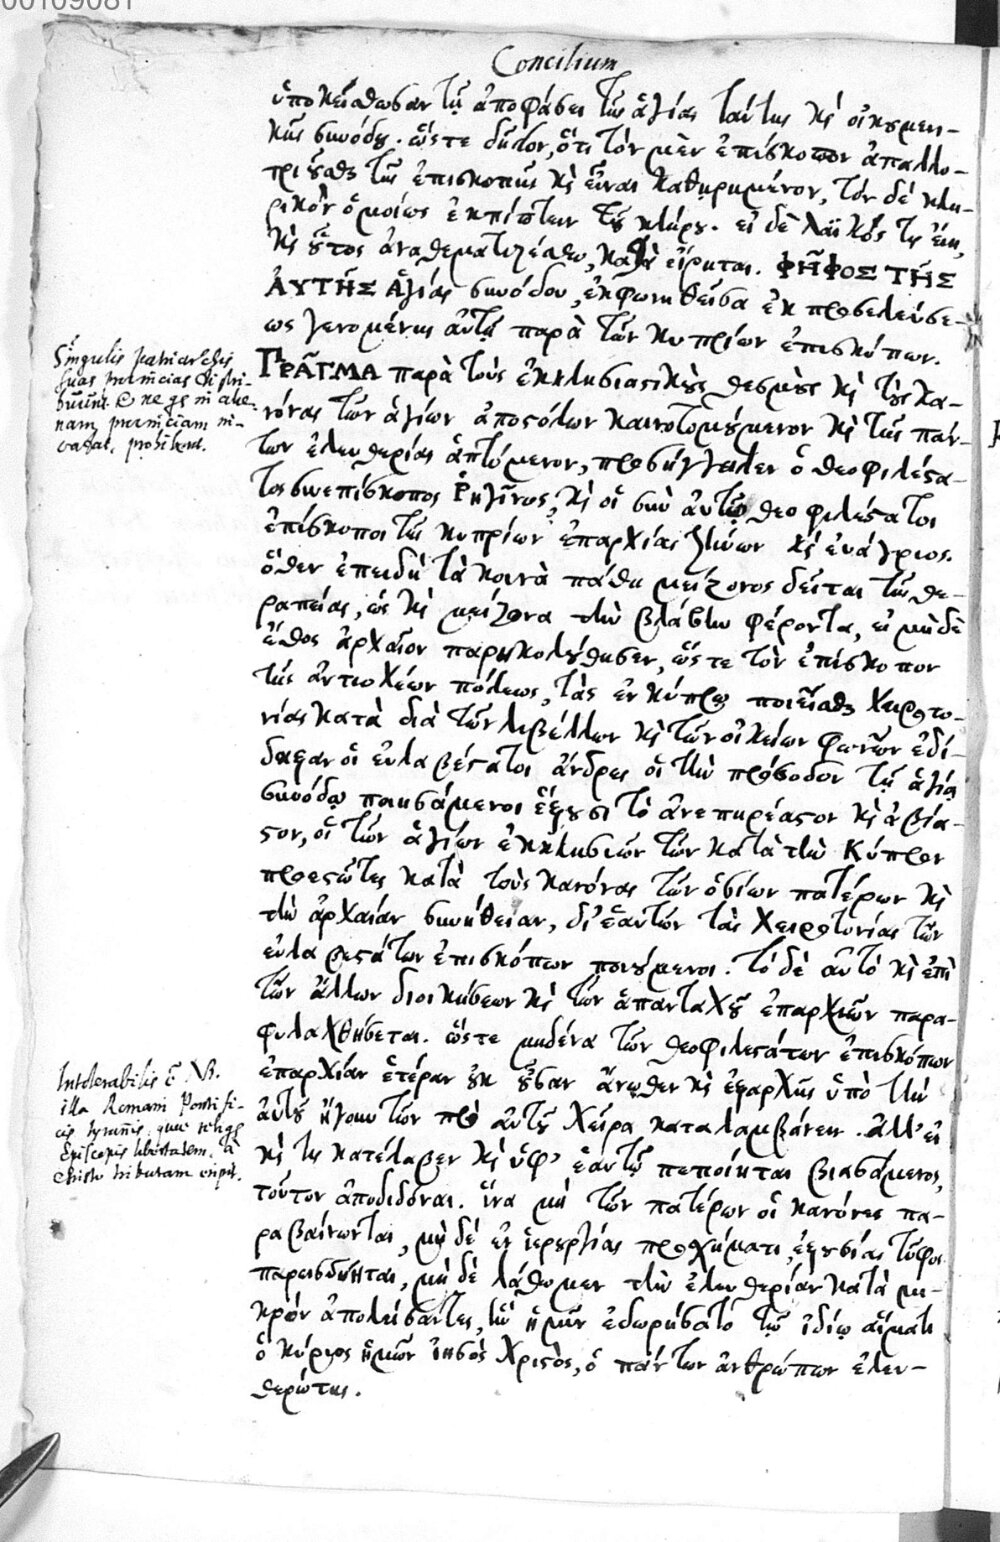 00109081
Concilium
ὑποκείσθωσαν τῇ ἀποφάσει τῆς ἁγίας ταύτης κὶ οἰκουμενι-
κῆς συνόδου. ὥστε δῆλον, ὅτι τὸν μὲν ἐπίσκοπον ἀπαλλο-
τριοῦσθαι τῆς ἐπισκοπῆς κὶ εἶναι καθῃρημένον, τὸν δὲ κλη-
ρικὸν ὁμοίως ἐκπίπτειν τοῦ κλήρου. εἰ δὲ λαϊκός τις εἴη,
κὶ οὗτος ἀναθεματιζέσθω, καθὰ εἴρηται. ΨΗ͂ΦΟΣ ΤΗ͂Σ
ΑΥΤΗ͂Σ Ἁγίας συνόδου, ἐκφωνηθεῖσα ἐκ προσελεύσε-
ως γενομένης αὐτῇ παρὰ τῶν κυπρίων ἐπισκόπων.
ΠΡΑ͂ΓΜΑ παρὰ τοὺς ἐκκλησιαστικοὺς θεσμοὺς κὶ τοὺς κα-
νόνας τῶν ἁγίων ἀποστόλων καινοτομούμενον κὶ τῆς πάν-
των ἐλευθερίας ἁπτόμενον, προσήγγειλεν ὁ θεοφιλέστα-
τος συνεπίσκοπος Ῥηγῖνος, κὶ οἱ σὺν αὐτῷ θεοφιλέστατοι
ἐπίσκοποι τῆς κυπρίων ἐπαρχίας ζήνων κὶ εὐάγριος.
ὅθεν ἐπειδὴ τὰ κοινὰ πάθη μείζονος δεῖται τῆς θε-
ραπείας, ὡς κὶ μείζονα τὴν βλάβην φέροντα, εἰ μηδὲ
ἔθος ἀρχαῖον παρηκολούθησεν, ὥστε τὸν ἐπίσκοπον
τῆς ἀντιοχέων πόλεως, τὰς ἐν κύπρῳ ποιεῖσθαι χειροτο-
νίας κατὰ διὰ τῶν λιβέλλων κὶ τῶν οἰκείων φωνῶν ἐδί-
δαξαν οἱ εὐλαβέστατοι ἄνδρες οἱ τὴν πρόσοδον τῇ ἁγίᾳ
συνόδῳ ποιησάμενοι ἕξουσι τὸ ἀνεπηρέαστον κὶ ἀβία-
στον, οἱ τῶν ἁγίων ἐκκλησιῶν τῶν κατὰ τὴν Κύπρον
προεστῶτες κατὰ τοὺς κανόνας τῶν ὁσίων πατέρων κὶ
τὴν ἀρχαίαν συνήθειαν, δι' ἑαυτῶν τὰς χειροτονίας τῶν
εὐλαβεστάτων ἐπισκόπων ποιούμενοι. τὸ δὲ αὐτὸ κὶ ἐπὶ
τῶν ἄλλων διοικήσεων κὶ τῶν ἁπανταχοῦ ἐπαρχιῶν παρα-
φυλαχθήσεται. ὥστε μηδένα τῶν θεοφιλεστάτων ἐπισκόπων
ἐπαρχίαν ἑτέραν οὐκ οὖσαν ἄνωθεν κὶ ἐξαρχῆς ὑπὸ τὴν
αὐτοῦ ἤγουν τῶν πρὸ αὐτοῦ χεῖρα καταλαμβάνειν. ἀλλ' εἰ
κὶ τις κατέλαβεν κὶ ὑφ' ἑαυτῷ πεποίηται βιασάμενος,
τοῦτον ἀποδιδόναι. ἵνα μὴ τῶν πατέρων οἱ κανόνες πα-
ραβαίνωνται, μὴ δὲ ἐν ἱερουργίας προσχήματι, ἐξουσίας τῦφος
παρεισδύηται, μὴ δὲ λάθωμεν τὴν ἐλευθερίαν κατὰ μι-
κρὸν ἀπολέσαντες, ἣν ἡμῖν ἐδωρήσατο τῷ ἰδίῳ αἵματι
ὁ κύριος ἡμῶν ἰησοῦς Χριστὸς, ὁ πάντων ἀνθρώπων ἐλευ-
θερώτης.
Singulis patriarchis
suas provincias distri-
buunt & ne qs in alie-
nam provinciam in-
vadat, prohibent.
Intolerabilis ē NB.
illa Romani Pontifi-
cis tyrannis, quae reliqs
Episcopis libertatem à
Christo tributam eripit.